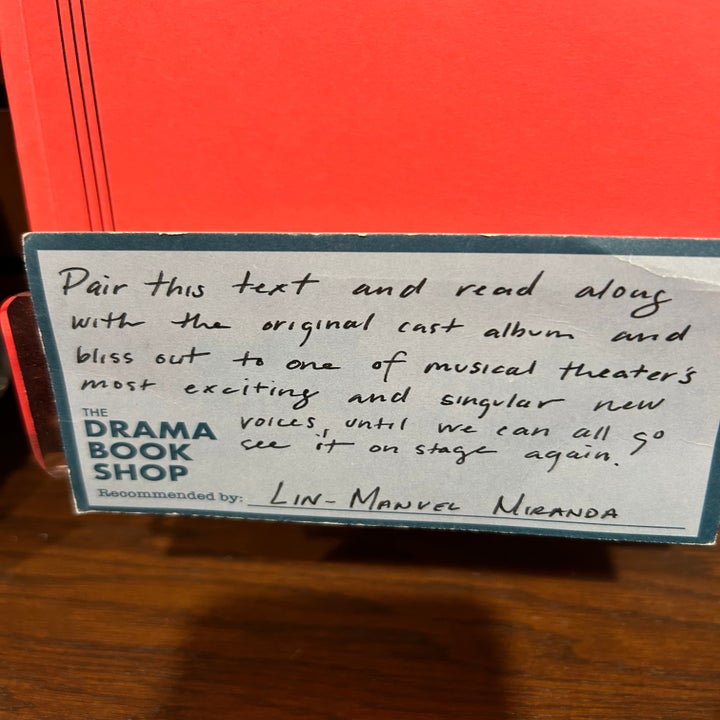 Pair this text and read along
with the original cast album and
bliss out to one of musical theater's
most exciting and singular new
voices, until we can all go
see it on stage again.
THE
DRAMA
BOOK
SHOP
Recommended by: LIN-MANUEL MIRANDA